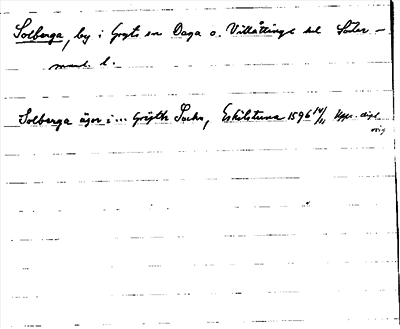 Solberga, by i Gryts sn Daga o. Villåttinge hd Söder-
manl. l.
Solberga ägor i ... Grÿth Sochn, Eskilstuna 1596 14/11 Upps. dipl
orig